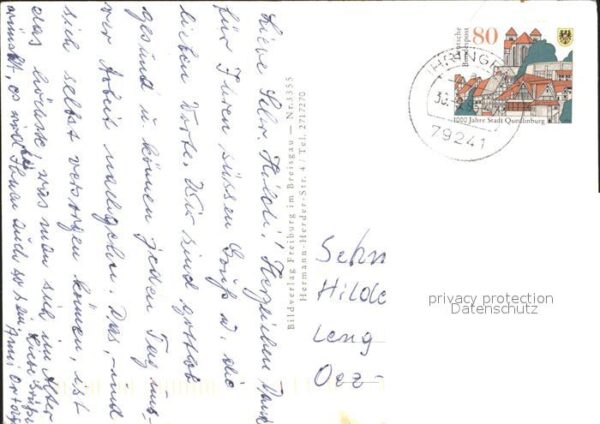 Liebe Schw. Hilde! Herzlichen Dank
für Ihren süssen Gruß u. die
lieben Worte. Wir sind gottlob
gesund u. können jeden Tag uns-
rer Arbeit nachgehen. Das, – und
sich selbst versorgen können, ist
das höchste, was man sich im Alter
wünscht, es möge Ihnen auch so sein,
Liebe Grüße
Bildverlag Freiburg im Breisgau — Nr. 3355
Hermann-Herder-Str. 4 / Tel. 2717270
80
Deutsche
Bundespost
1000 Jahre Stadt Quedlinburg
IHRINGE
79241
Schw
Hilde
Leng
Oez-
privacy protection
Datenschutz